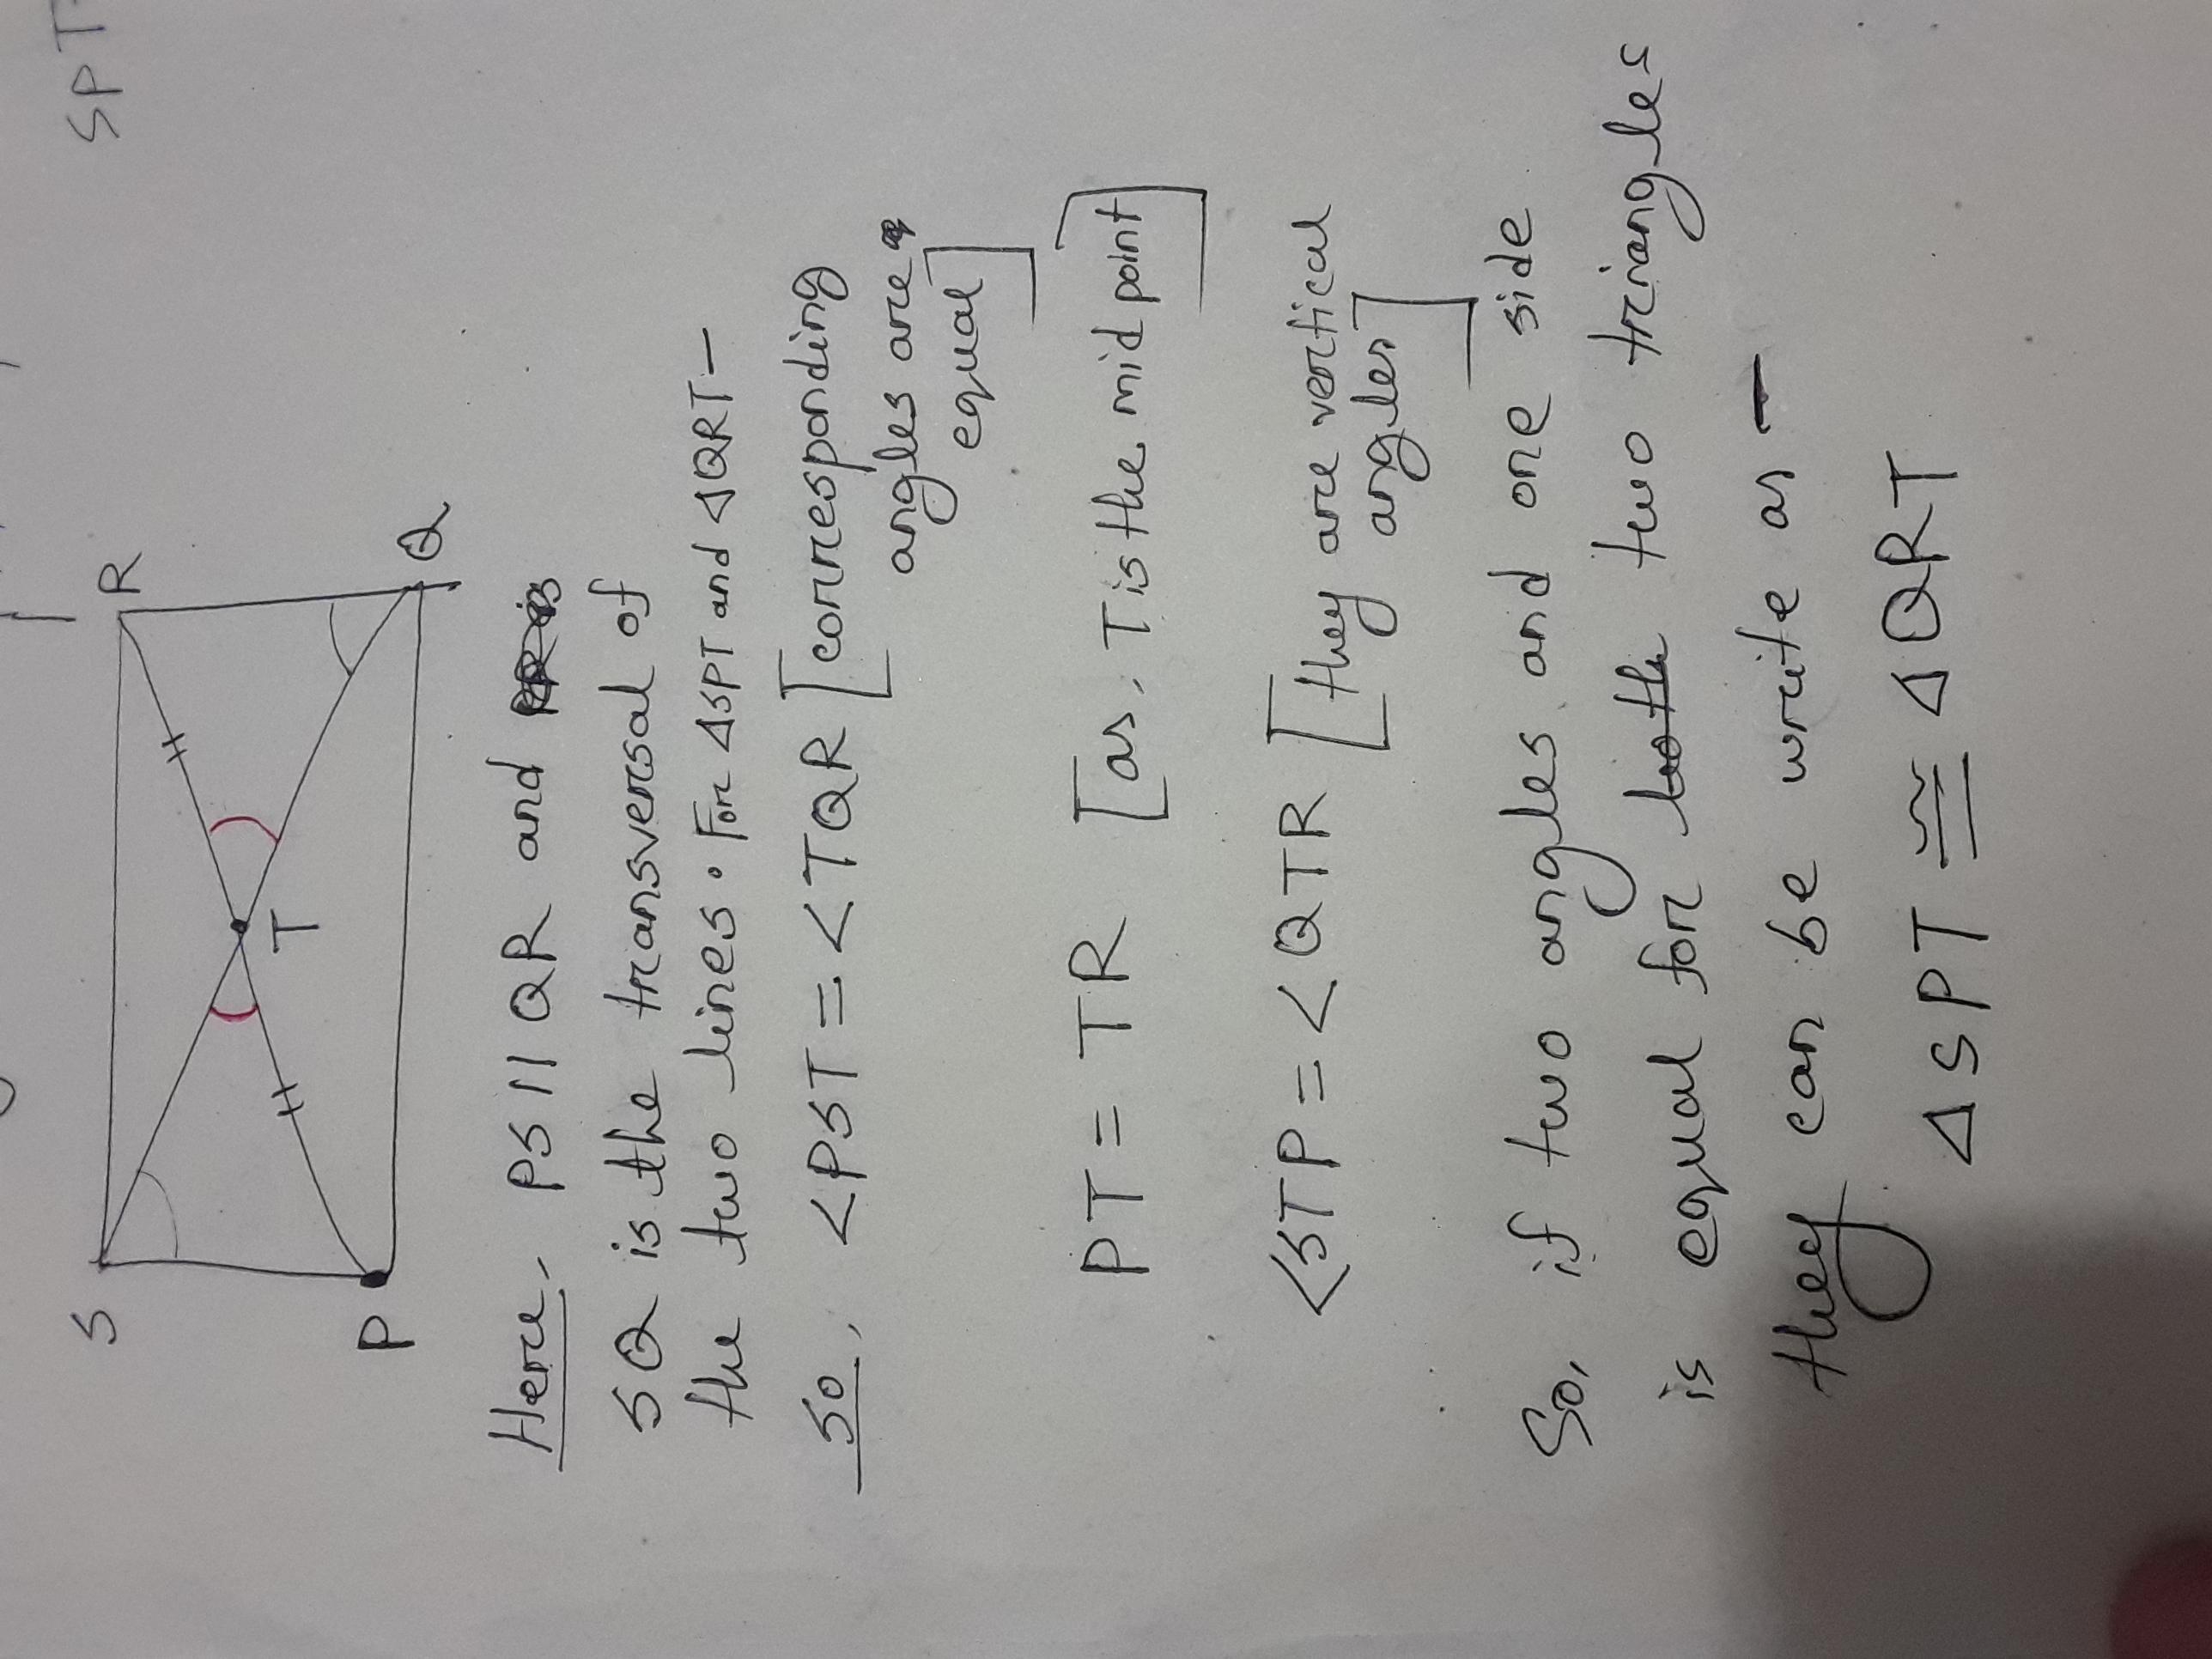 SPT
S R
T
P Q
Here, PS || QR and
SQ is the transversal of
the two lines. For ΔSPT and ΔQRT –
So, <PST = <TQR [corresponding
angles are
equal]
PT = TR [as, T is the mid point]
<STP = <QTR [they are vertical
angles]
So, if two angles and one side
is equal for both two triangles
they can be write as –
ΔSPT ≅ ΔQRT